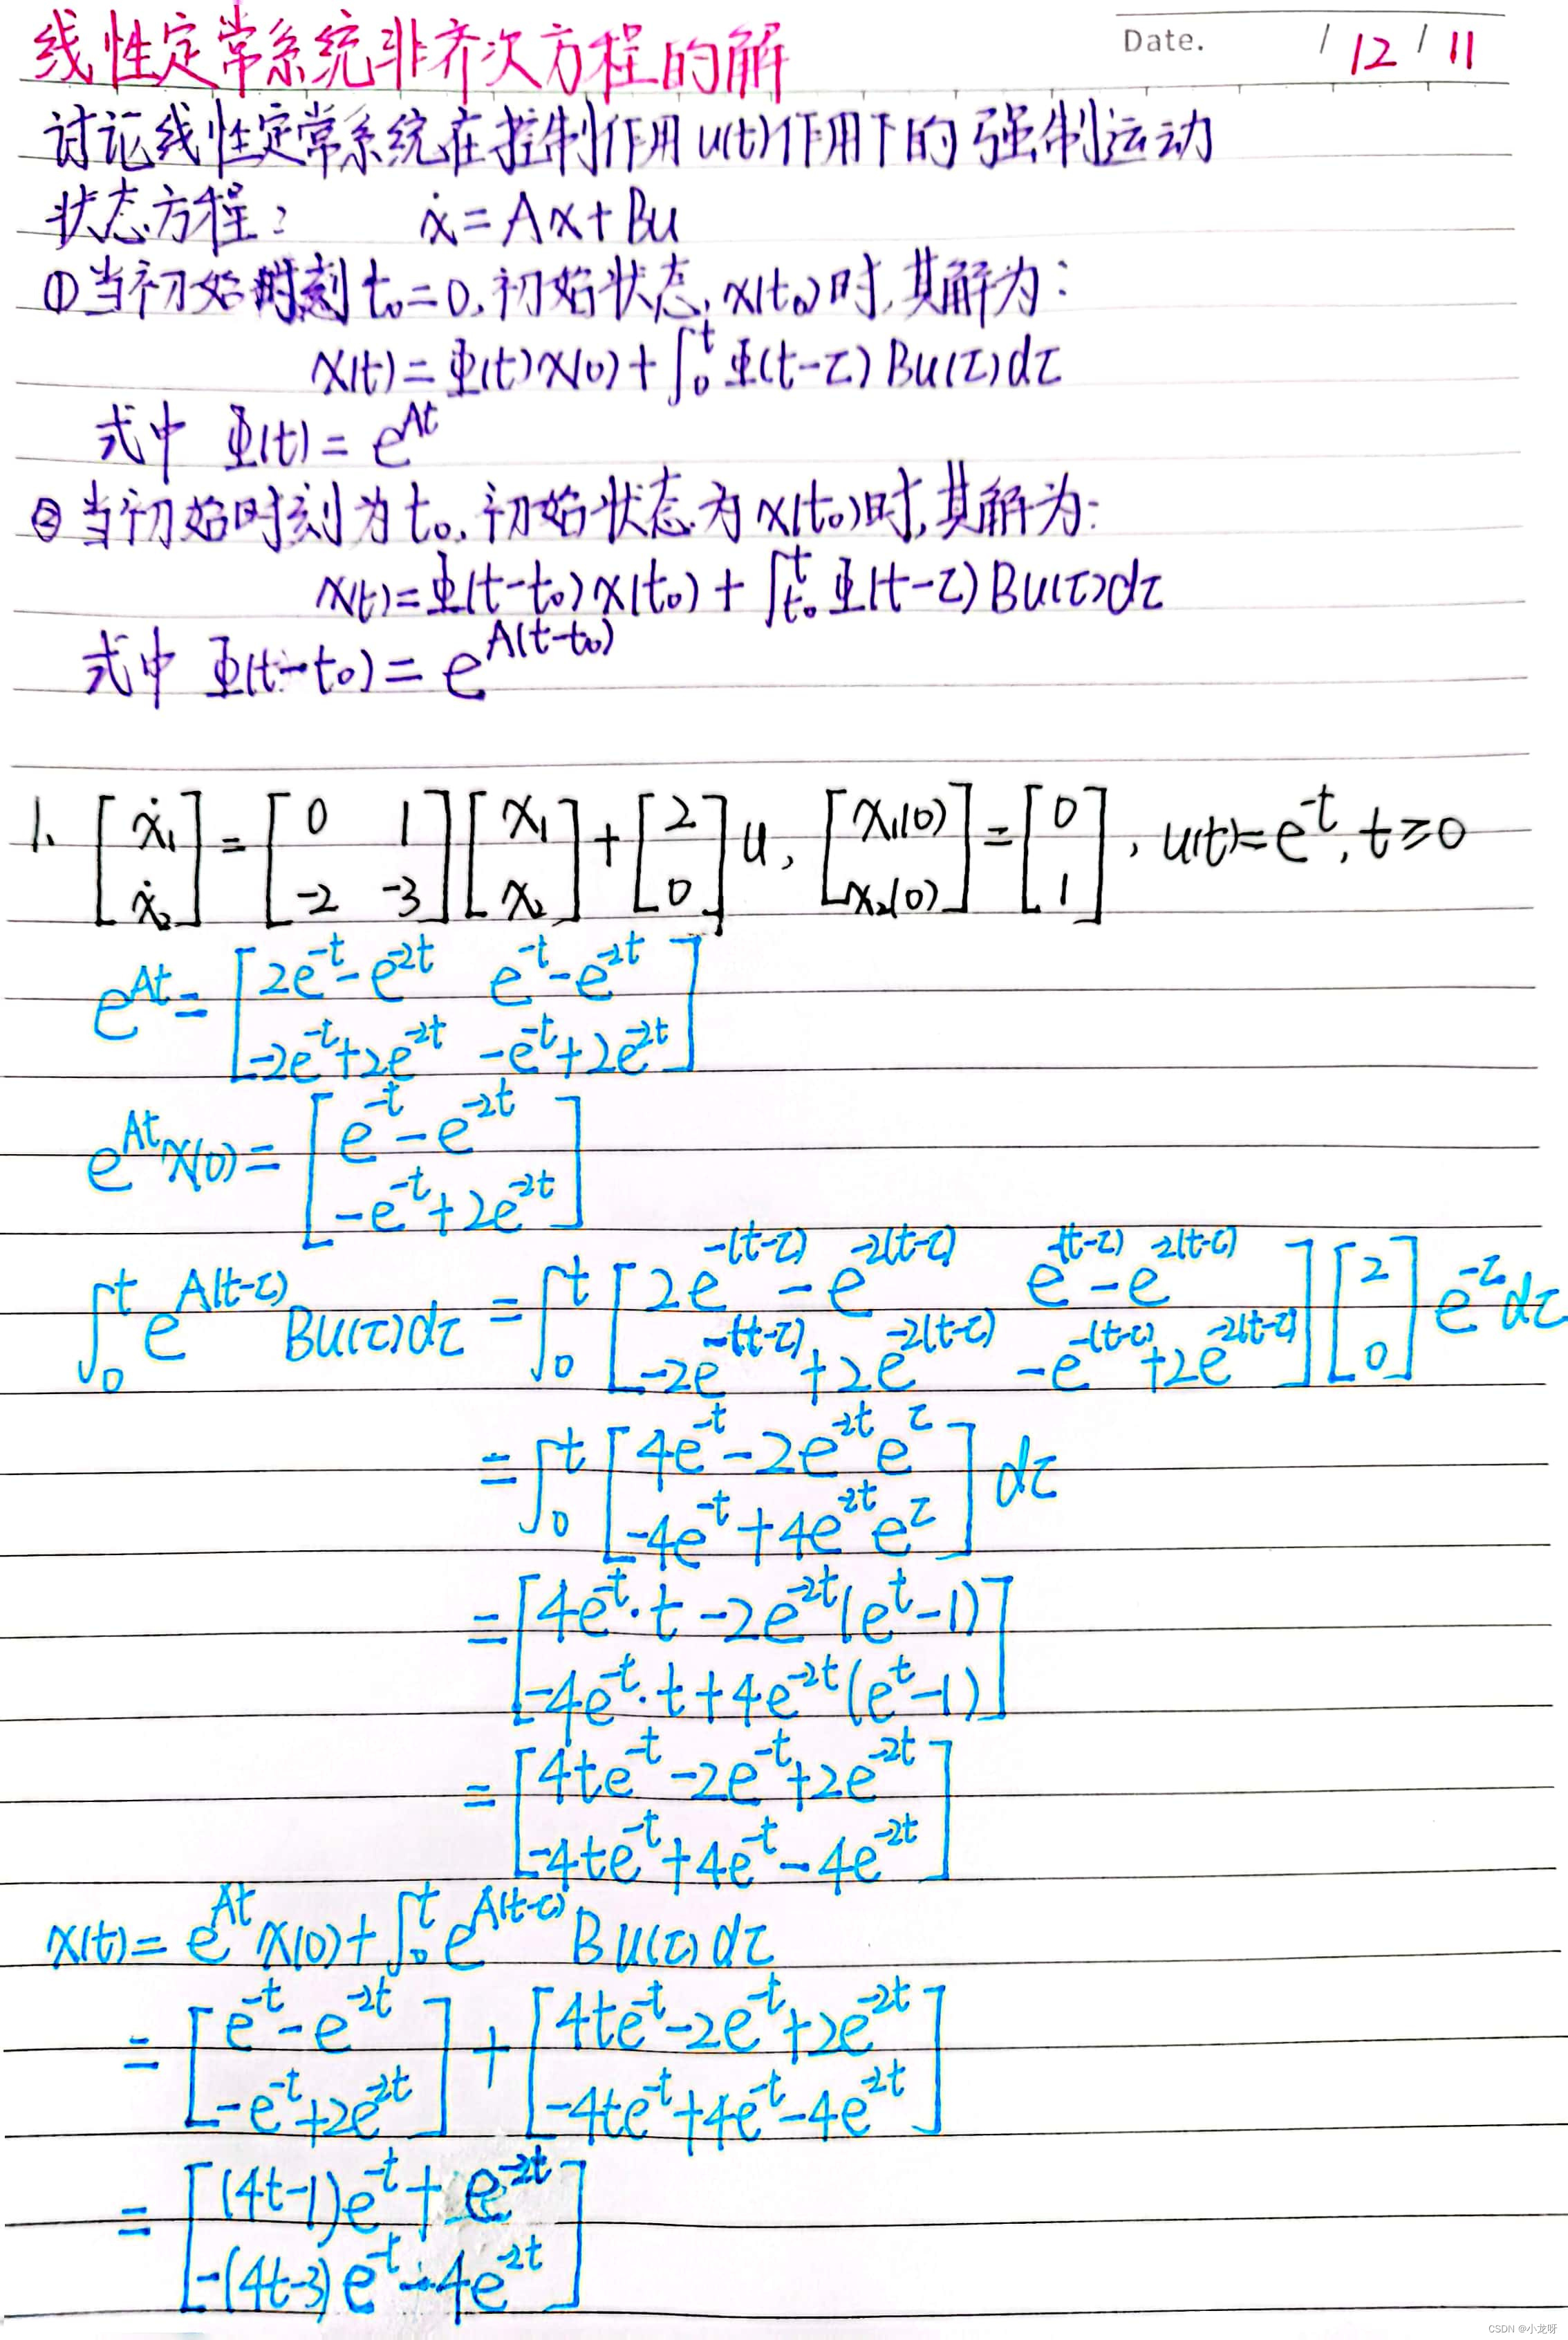 线性定常系统非齐次方程的解
Date. / 12 / 11
讨论线性定常系统在控制作用u(t)作用下的强制运动
状态方程: ẋ=Ax+Bu
①当初始时刻t₀=0,初始状态,x(t₀)时,其解为:
x(t)=Φ(t)x(0)+∫₀ᵗΦ(t-τ)Bu(τ)dτ
式中 Φ(t)=e^{At}
②当初始时刻为t₀,初始状态为x(t₀)时,其解为:
x(t)=Φ(t-t₀)x(t₀)+∫_{t₀}^{t}Φ(t-τ)Bu(τ)dτ
式中 Φ(t-t₀)=e^{A(t-t₀)}
1. [ẋ₁; ẋ₂]=[0 1; -2 -3][x₁; x₂]+[2; 0]u, [x₁(0); x₂(0)]=[0; 1], u(t)=e^{-t}, t≥0
e^{At}=[2e^{-t}-e^{-2t} e^{-t}-e^{-2t}; -2e^{-t}+2e^{-2t} -e^{-t}+2e^{-2t}]
e^{At}x(0)=[e^{-t}-e^{-2t}; -e^{-t}+2e^{-2t}]
∫₀ᵗe^{A(t-τ)}Bu(τ)dτ=∫₀ᵗ[2e^{-(t-τ)}-e^{-2(t-τ)} e^{-(t-τ)}-e^{-2(t-τ)}; -2e^{-(t-τ)}+2e^{-2(t-τ)} -e^{-(t-τ)}+2e^{-2(t-τ)}][2; 0]e^{-τ}dτ
=∫₀ᵗ[4e^{-t}-2e^{-2t}e^{τ}; -4e^{-t}+4e^{-2t}e^{τ}]dτ
=[4e^{-t}·t-2e^{-2t}(e^{t}-1); -4e^{-t}·t+4e^{-2t}(e^{t}-1)]
=[4te^{-t}-2e^{-t}+2e^{-2t}; -4te^{-t}+4e^{-t}-4e^{-2t}]
x(t)=e^{At}x(0)+∫₀ᵗe^{A(t-τ)}Bu(τ)dτ
=[e^{-t}-e^{-2t}; -e^{-t}+2e^{-2t}]+[4te^{-t}-2e^{-t}+2e^{-2t}; -4te^{-t}+4e^{-t}-4e^{-2t}]
=[(4t-1)e^{-t}+e^{-2t}; -(4t-3)e^{-t}-4e^{-2t}]
CSDN @小龙呀